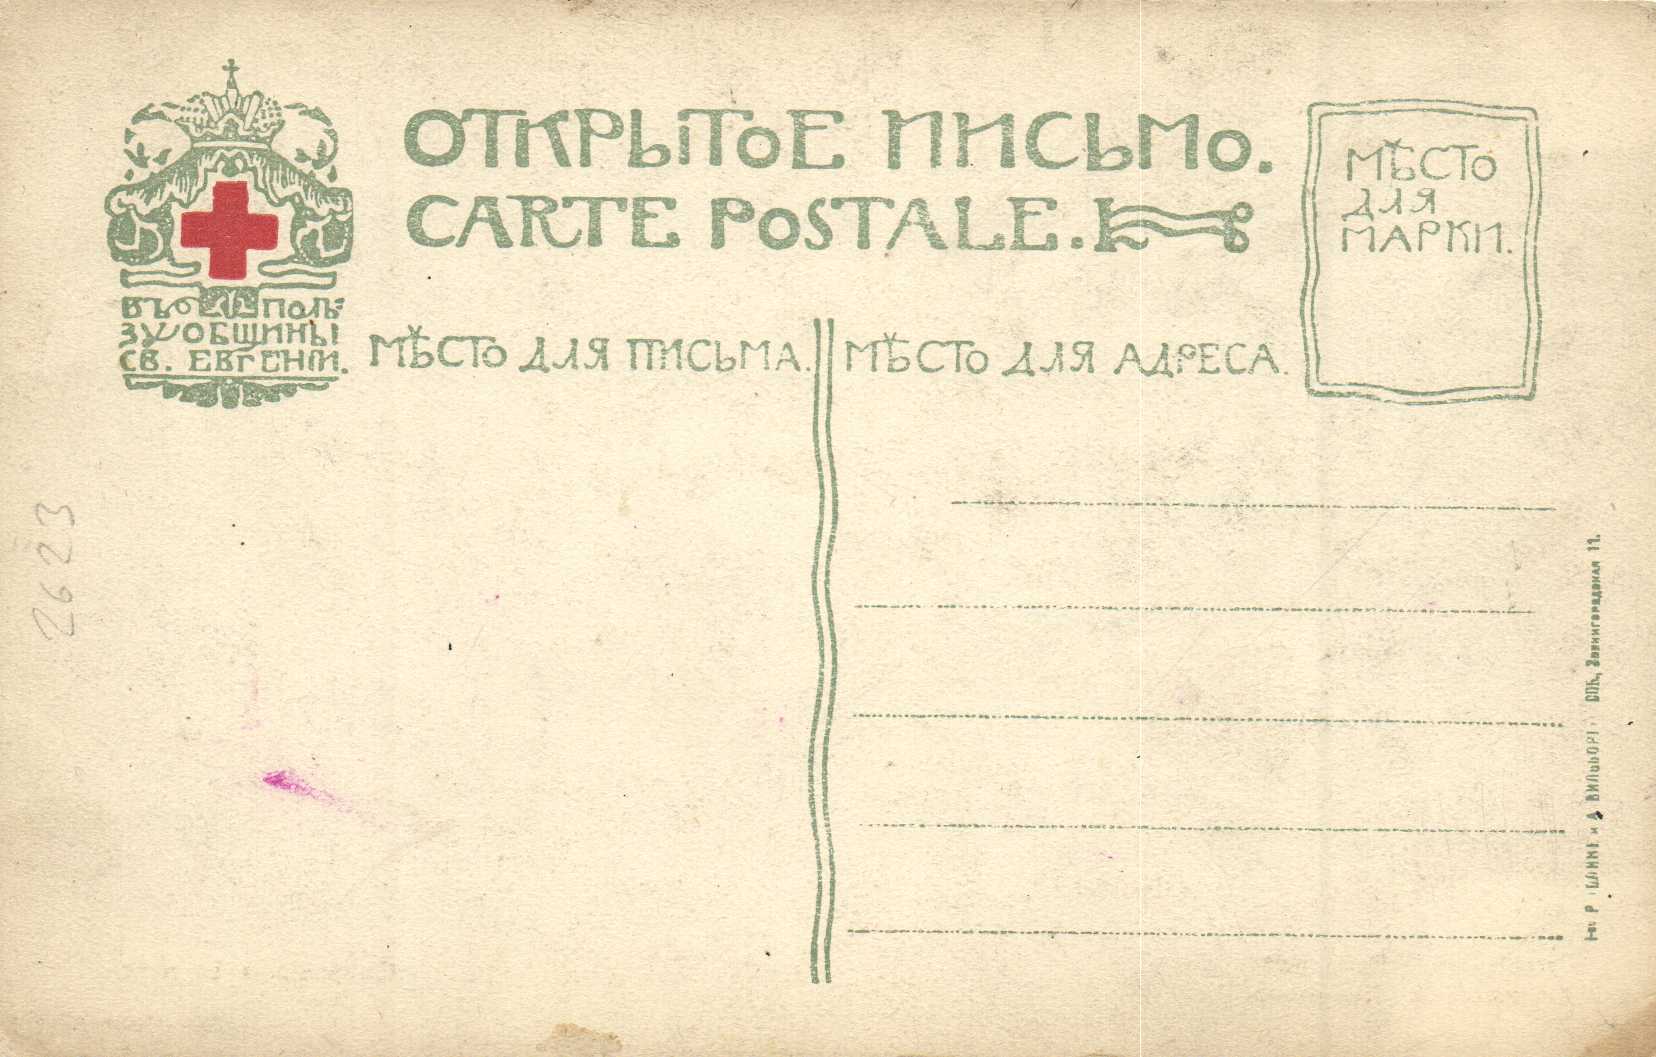 ОТКРЫТОЕ ПИСЬМО.
CARTE POSTALE.
МѢСТО
ДЛЯ
МАРКИ.
ВЪ ПОЛЬ-
ЗУ ОБЩИНЫ
СВ. ЕВГЕНІИ.
МѢСТО ДЛЯ ПИСЬМА.
МѢСТО ДЛЯ АДРЕСА.
2623
и А ВИЛЬБОРГ СПБ., Звенигородская 11.